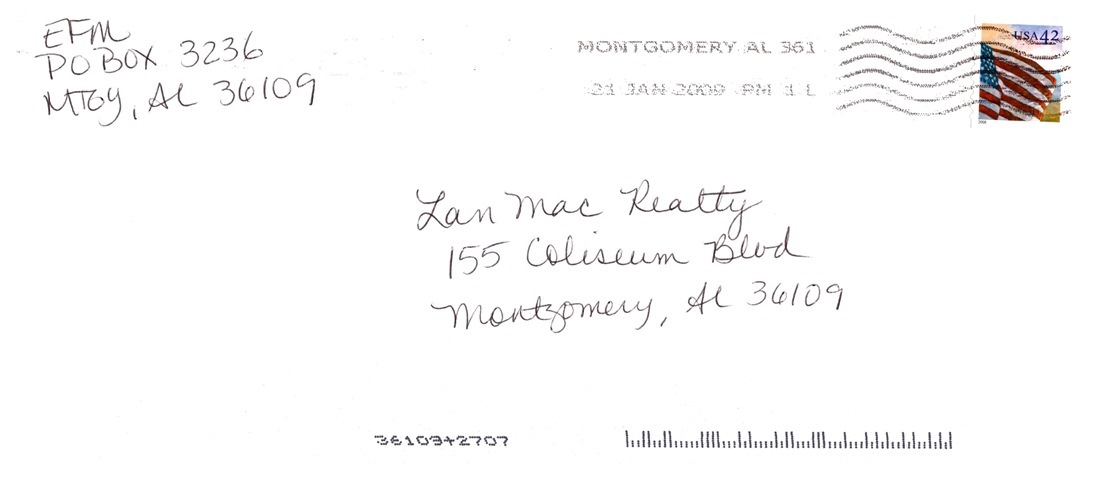 EFM
PO BOX 3236
MTGY, AL 36109
MONTGOMERY AL 361
21 JAN 2009 PM 1 L
USA 42
Lan Mac Realty
155 Coliseum Blvd
Montgomery, AL 36109
36109+2707